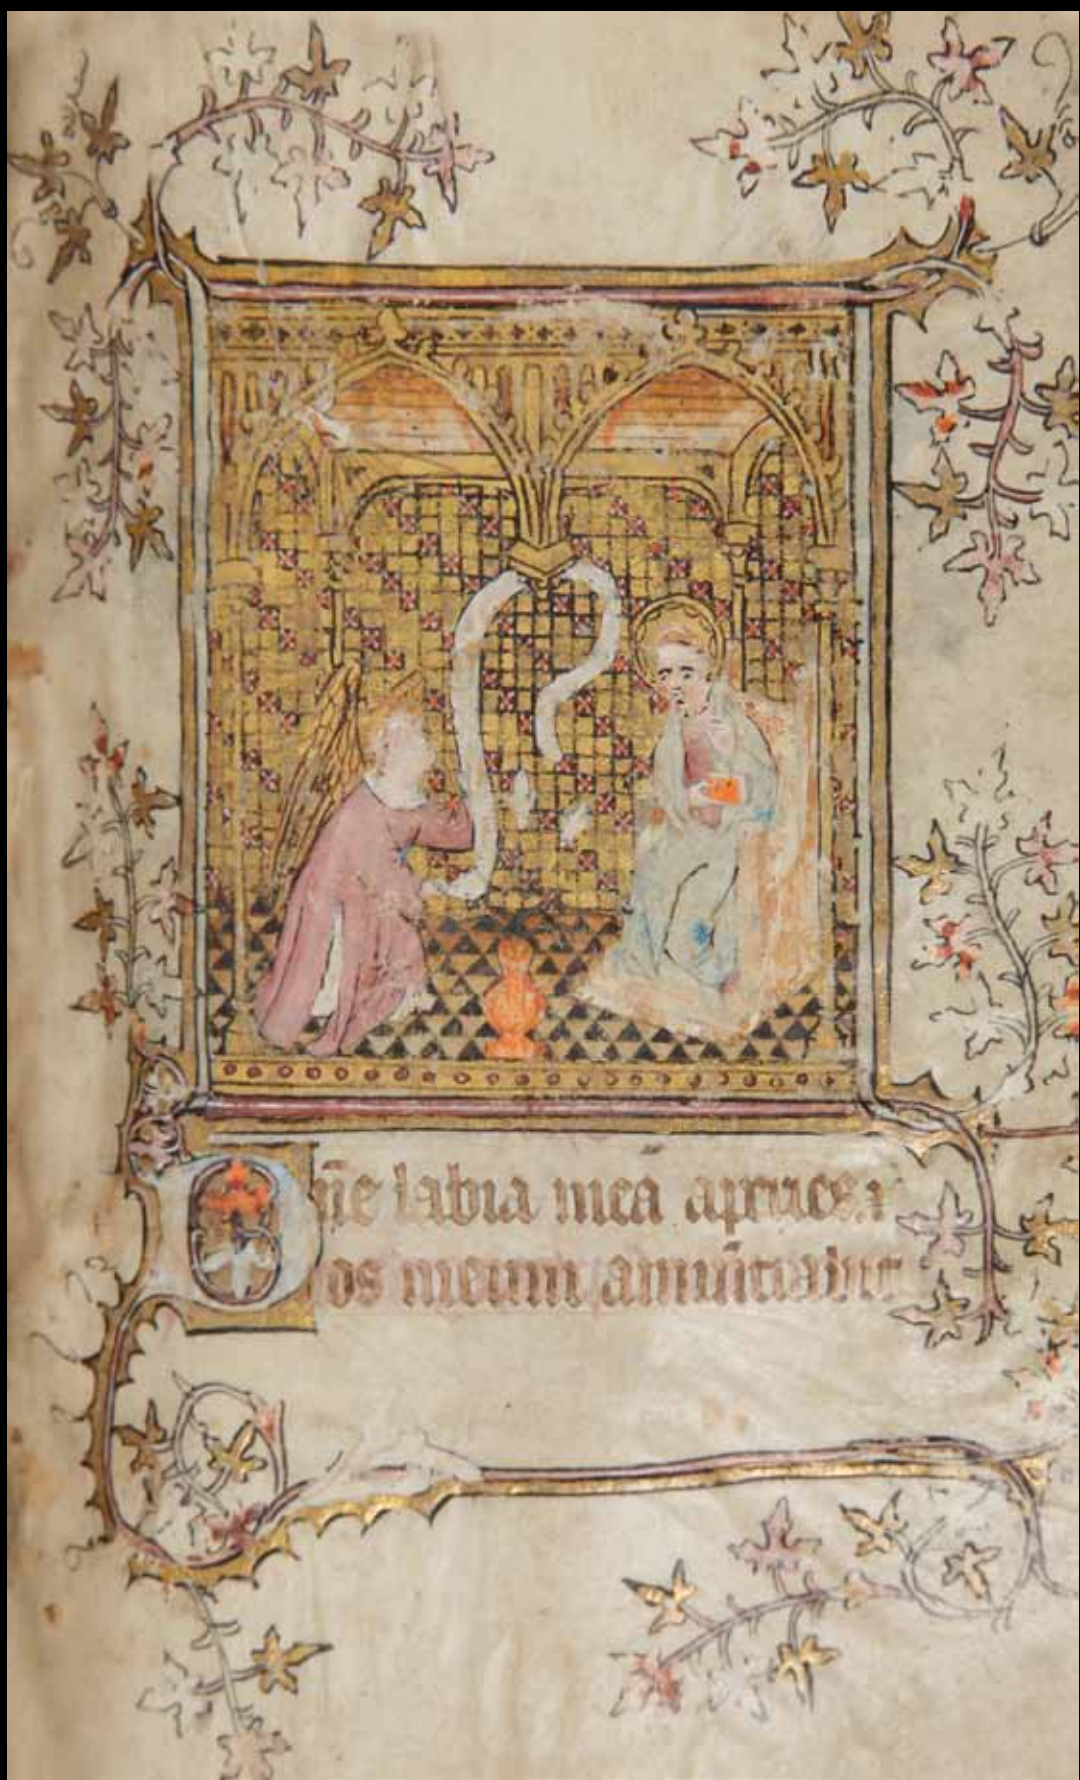 Dn̄e labia mea aperies. ⁊
os meum annūciabit